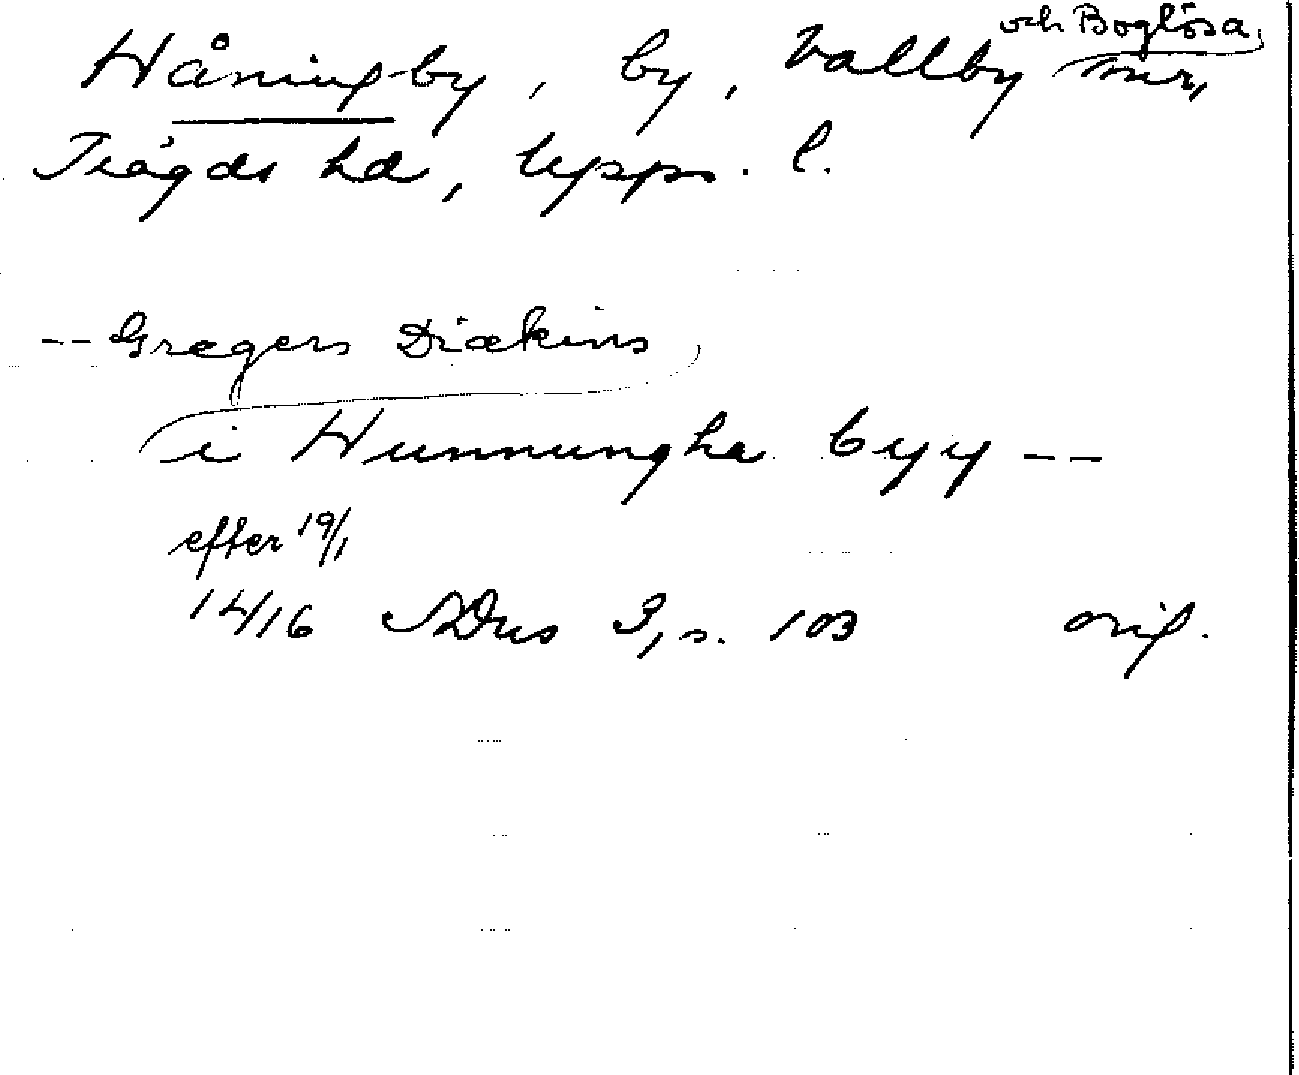 Håningby, by, Vallby och Boglösa snr,
Trögds hd, Upps. l.
-- Gregers Diækins
i Hunnungha byy --
efter 19/1
1416 SDns 3, s. 103 orig.